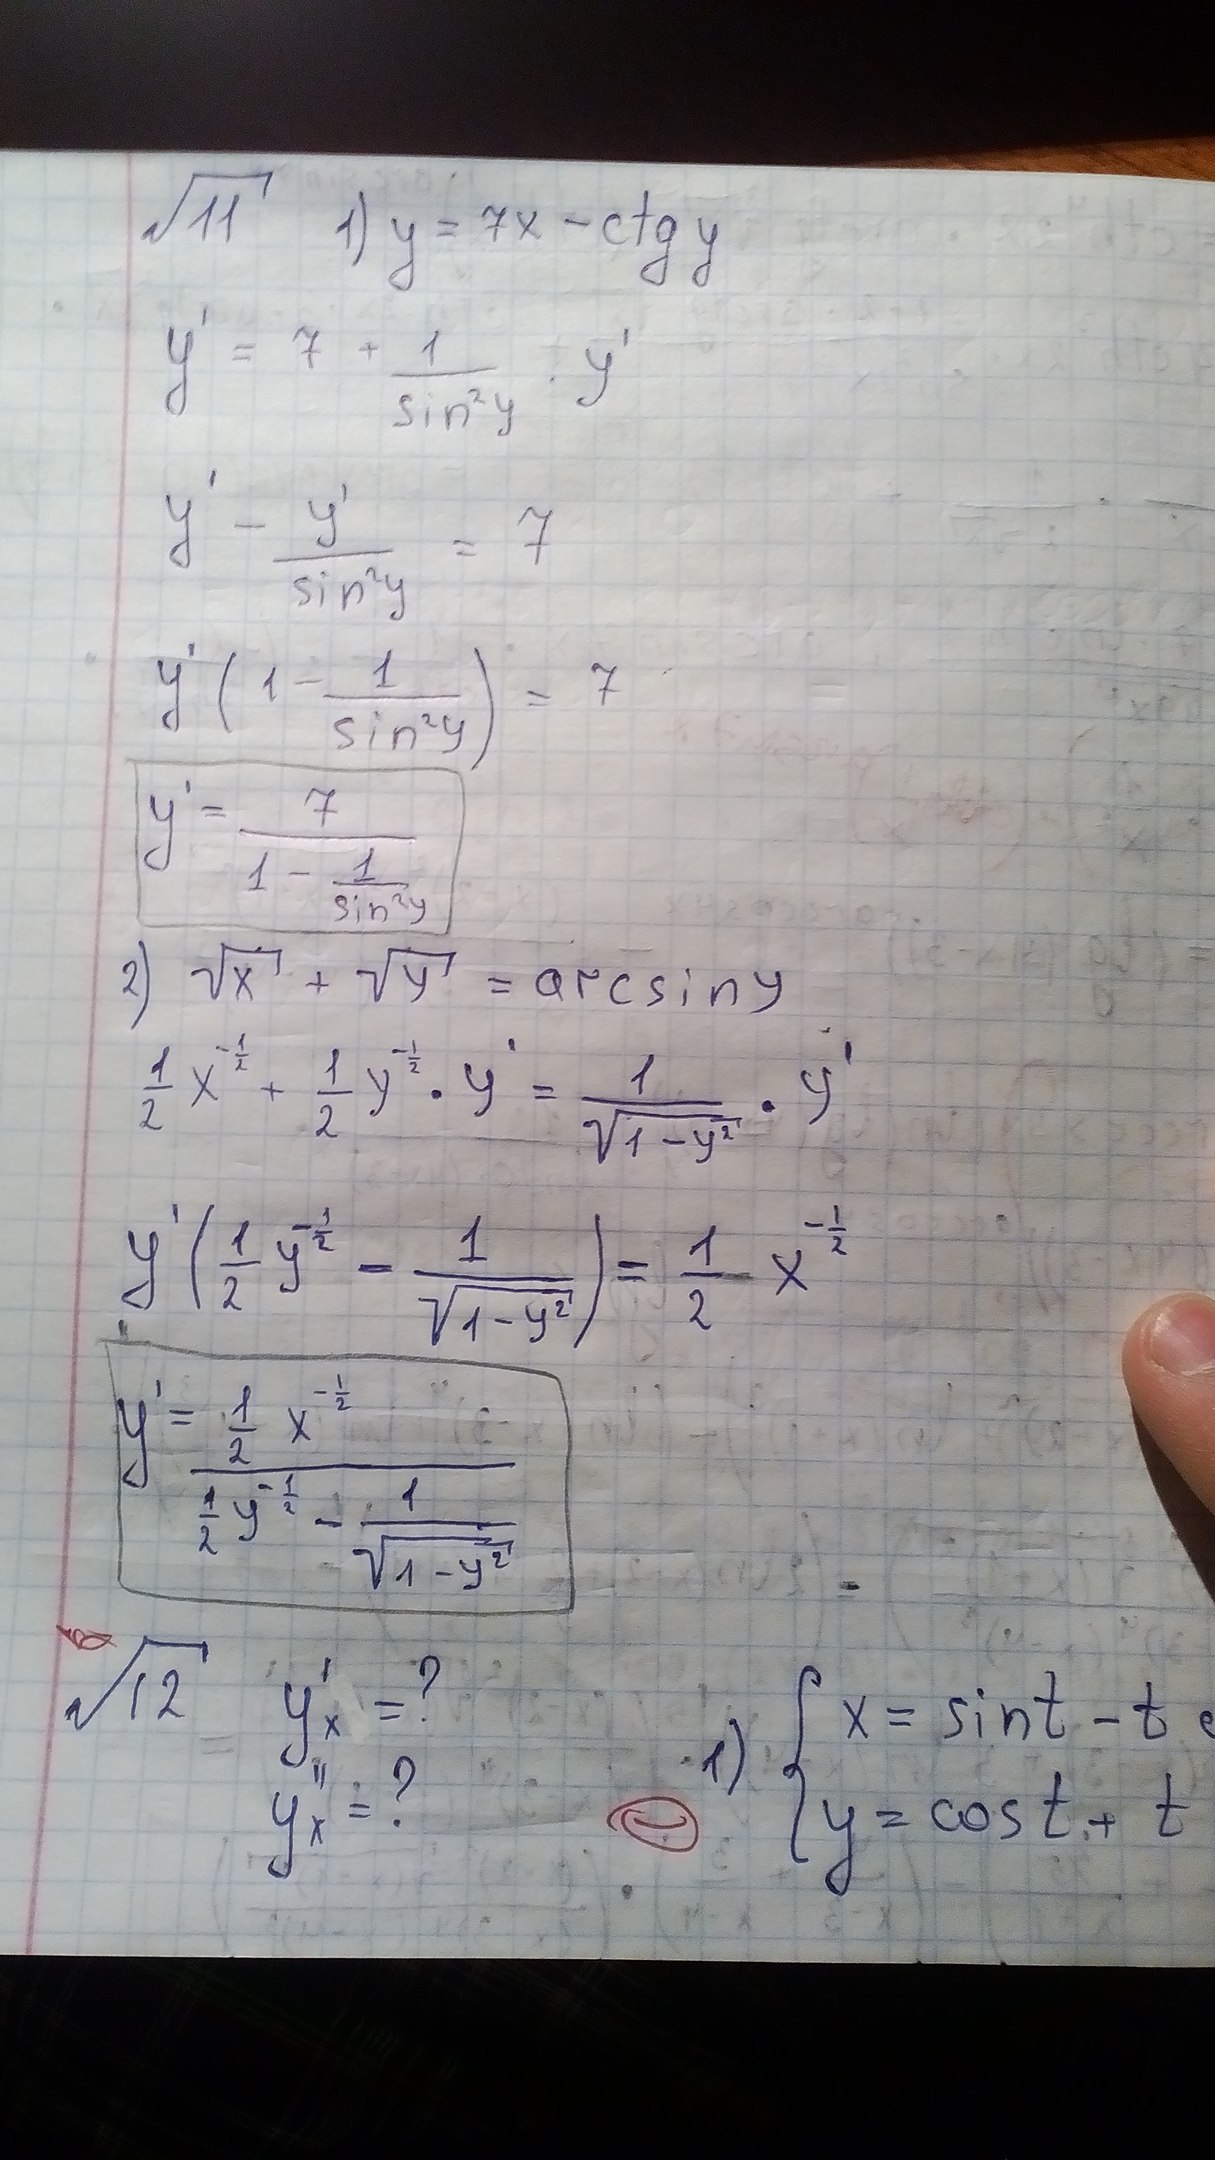 √11 1) y = 7x - ctg y
y' = 7 + 1/sin²y · y'
y' - y'/sin²y = 7
y'(1 - 1/sin²y) = 7
y' = 7/(1 - 1/sin²y)
2) √x + √y = arcsiny
1/2 x^(-1/2) + 1/2 y^(-1/2) · y' = 1/√(1-y²) · y'
y'(1/2 y^(-1/2) - 1/√(1-y²)) = 1/2 x^(-1/2)
y' = (1/2 x^(-1/2))/(1/2 y^(-1/2) - 1/√(1-y²))
√12 y'ₓ = ? 1) { x = sint - t
y''ₓ = ? y = cost + t